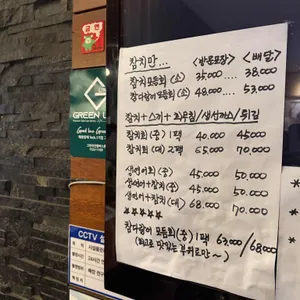 참치만... <방문포장> <배달>
참치모둠회 (소) 35,000 38,000
참다랑어모둠회 (소) 48,000 53,000
참치+스끼+회무침/생선까스/튀김
참치회(중) 1팩 40,000 45,000
참치회(대) 2팩 65,000 70,000
생연어회(중) 45,000 50,000
생연어+참치(중) 45,000 50,000
생연어+참치(대) 68,000 70,000
참다랑어 모둠회(중) 1팩 63,000/68,000
(최고로 맛있는 부위로만~)
GREEN
CCTV